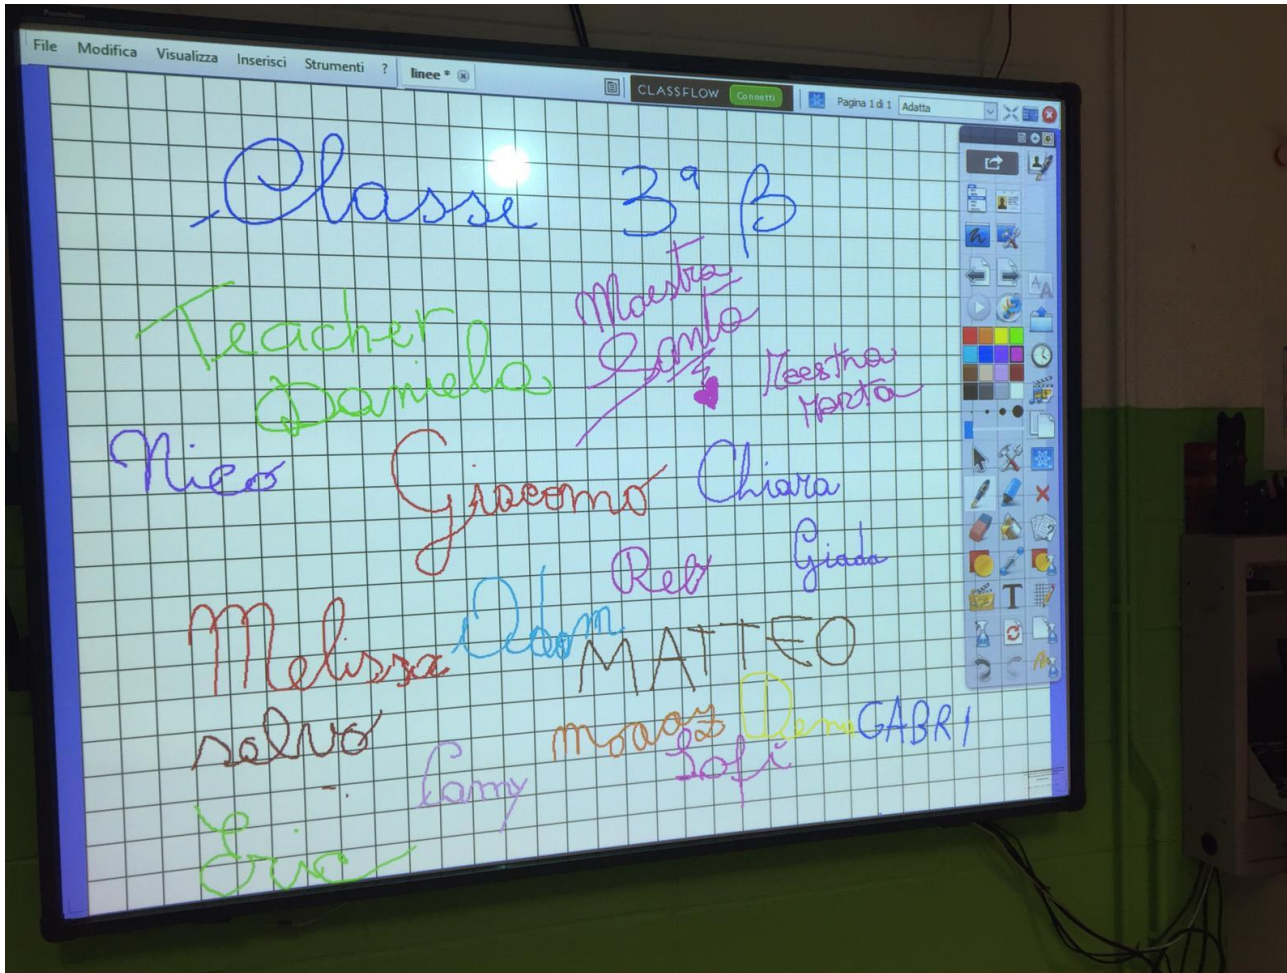 File Modifica Visualizza Inserisci Strumenti ? linee *
CLASSFLOW Connetti Pagina 1 di 1 Adatta
Classe 3ª B
Teacher
Daniela
Maestra
Santa
Maestra
Marta
Nico
Giacomo
Chiara
Reby
Giada
Melissa
Adam
MATTEO
salvo
moaaz
GABRI
Camy
Sofi
Eric